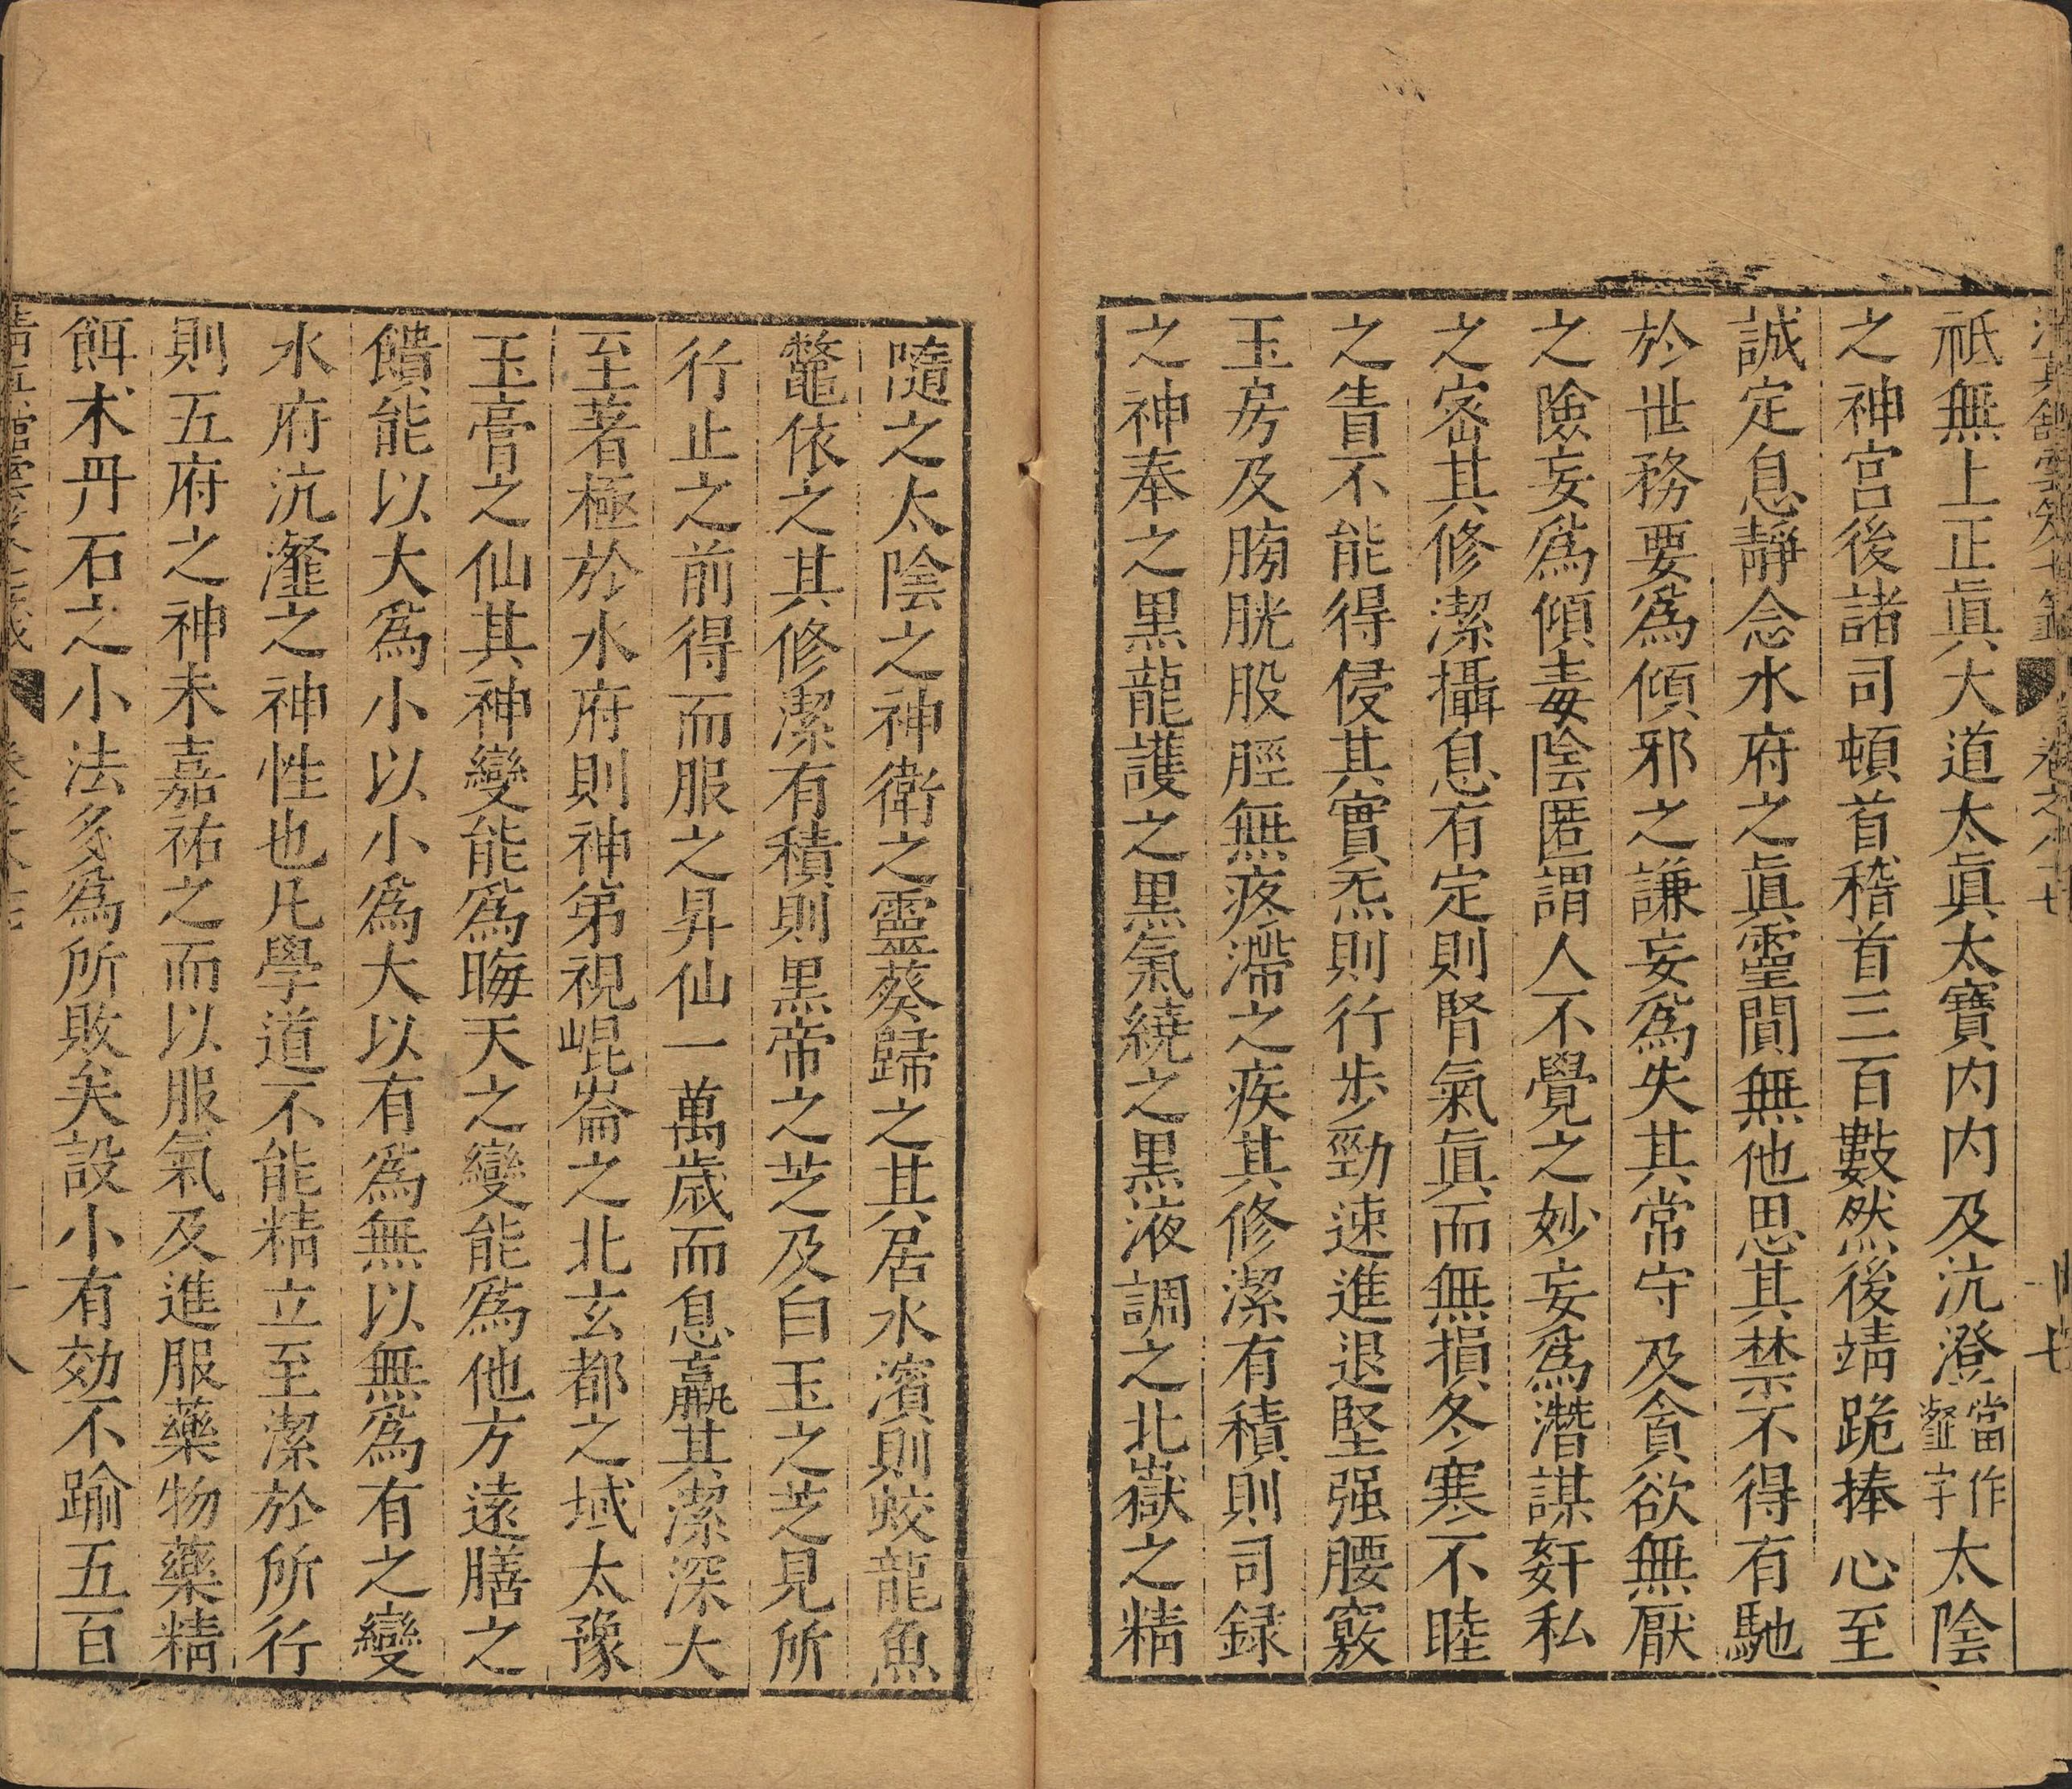 祇無上正眞大道太眞太寶內內及沆澄當作瀣字太陰
之神宮後諸司頓首稽首三百數然後靖跪捧心至
誠定息靜念水府之眞靈間無他思其禁不得有馳
於世務要為傾邪之謙妄為失其常守及貪欲無厭
之險妄為傾毒陰匿謂人不覺之妙妄為潛謀姧私
之宻其修潔攝息有定則腎氣眞而無損冬寒不睦
之眚不能得侵其實炁則行步勁速進退堅强腰竅
玉房及膀胱股脛無疼滯之疾其修潔有積則司録
之神奉之黒龍護之黒氣繞之黒液調之北嶽之精
隨之太陰之神衛之靈葵歸之其居水濱則蛟龍魚
鼈依之其修潔有積則黒帝之芝及白玉之芝見所
行止之前得而服之昇仙一萬歲而息贏其潔深大
至著極於水府則神第視崐崙之北玄都之域太豫
玉膏之仙其神變能為晦天之變能為他方遠膳之
饋能以大為小以小為大以有為無以無為有之變
水府沆瀣之神性也凡學道不能精立至潔於所行
則五府之神未嘉祐之而以服氣及進服藥物藥精
餌术丹石之小法多為所敗矣設小有効不踰五百